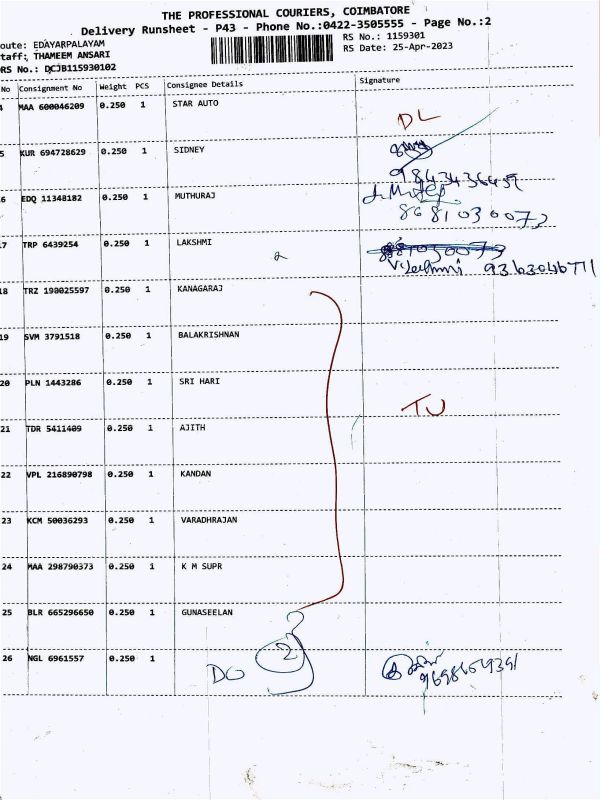 THE PROFESSIONAL COURIERS, COIMBATORE
Delivery Runsheet - P43 - Phone No.:0422-3505555 - Page No.:2
oute: EDAYARPALAYAM RS No.: 1159301
taff: THAMEEM ANSARI RS Date: 25-Apr-2023
RS No.: DCJB115930102
No Consignment No Weight PCS Consignee Details Signature
4 MAA 600046209 0.250 1 STAR AUTO
DL
5 KUR 694728629 0.250 1 SIDNEY
6 EDQ 11348182 0.250 1 MUTHURAJ
8681030073
17 TRP 6439254 0.250 1 LAKSHMI
18 TRZ 190025597 0.250 1 KANAGARAJ
19 SVM 3791518 0.250 1 BALAKRISHNAN
20 PLN 1443286 0.250 1 SRI HARI
TU
21 TDR 5411409 0.250 1 AJITH
22 VPL 216890798 0.250 1 KANDAN
23 KCM 50036293 0.250 1 VARADHRAJAN
24 MAA 298790373 0.250 1 K M SUPR
25 BLR 665296650 0.250 1 GUNASEELAN
26 NGL 6961557 0.250 1
DO 2